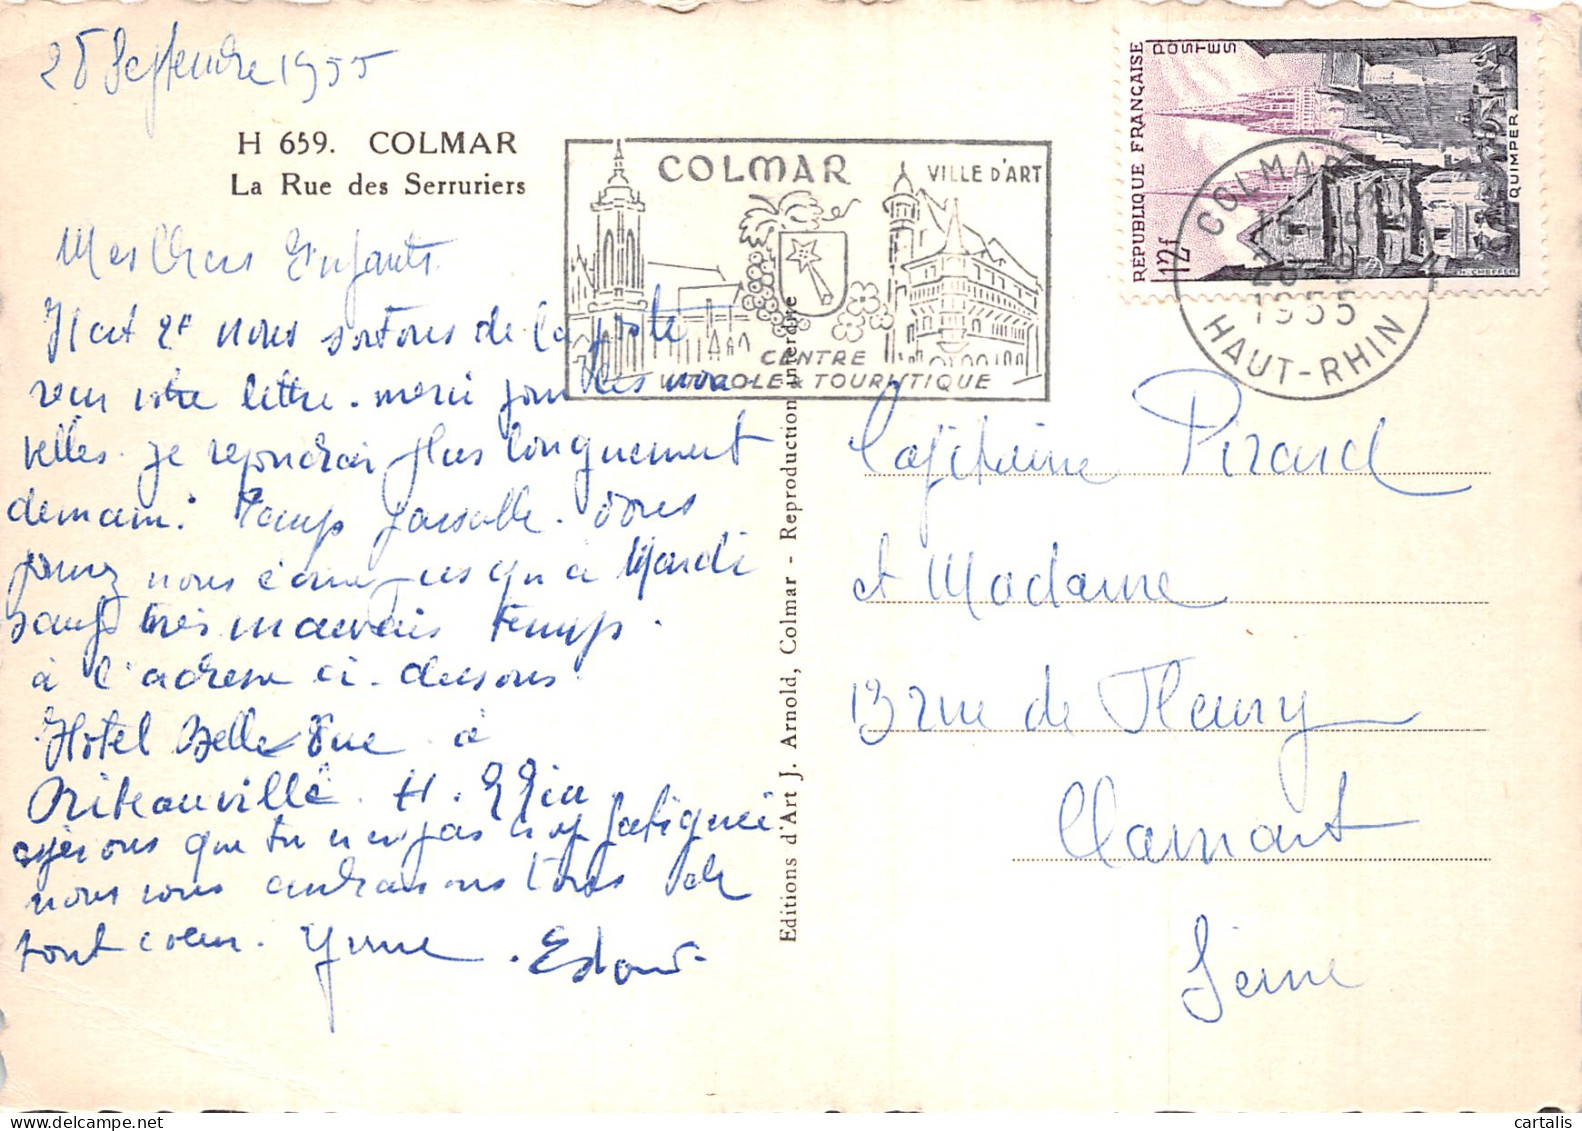 28 Septembre 1955
H 659. COLMAR
La Rue des Serruriers
Mes Chers Enfants.
nous sortons de la poste
reçu votre lettre. merci pour les nou-
velles. je repondrai plus longuement
demain. Temps passable. vous
pouvez nous écrire jusqu'à Mardi
sauf très mauvais temps.
à l'adresse ci-dessous
Hotel Belle Vue à
Ribeauvillé. H. Rhin
que tu n'es pas trop fatiguée
nous vous embrassons tous de
tout cœur. Yvonne.
COLMAR
VILLE D'ART
CENTRE
VITICOLE & TOURISTIQUE
RÉPUBLIQUE FRANÇAISE
POSTES
12F
QUIMPER
H. CHEFFER
COLMAR
1955
HAUT-RHIN
Editions d'Art J. Arnold, Colmar - Reproduction interdite
Capitaine Pirard
et Madame
13 rue de Fleury
Clamart
Seine
cartalis